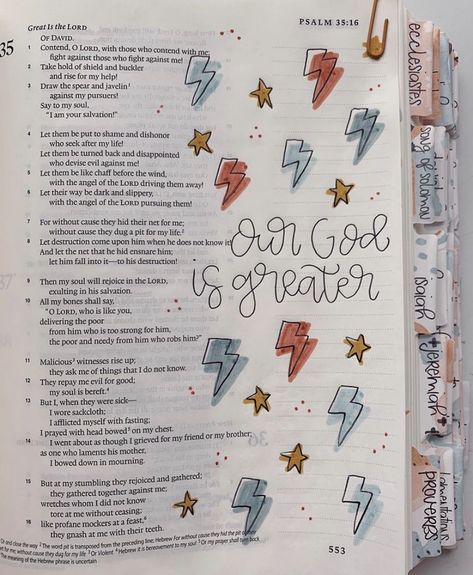 Great Is the LORD
PSALM 35:16
35
OF DAVID.
1 Contend, O LORD, with those who contend with me;
fight against those who fight against me!
2 Take hold of shield and buckler
and rise for my help!
3 Draw the spear and javelin¹
against my pursuers!
Say to my soul,
“I am your salvation!”
4 Let them be put to shame and dishonor
who seek after my life!
Let them be turned back and disappointed
who devise evil against me!
5 Let them be like chaff before the wind,
with the angel of the LORD driving them away!
6 Let their way be dark and slippery,
with the angel of the LORD pursuing them!
7 For without cause they hid their net for me;
without cause they dug a pit for my life.²
8 Let destruction come upon him when he does not know it!
And let the net that he hid ensnare him;
let him fall into it—to his destruction!
9 Then my soul will rejoice in the LORD,
exulting in his salvation.
10 All my bones shall say,
“O LORD, who is like you,
delivering the poor
from him who is too strong for him,
the poor and needy from him who robs him?”
11 Malicious³ witnesses rise up;
they ask me of things that I do not know.
12 They repay me evil for good;
my soul is bereft.⁴
13 But I, when they were sick—
I wore sackcloth;
I afflicted myself with fasting;
I prayed with head bowed⁵ on my chest.
14 I went about as though I grieved for my friend or my brother;
as one who laments his mother,
I bowed down in mourning.
15 But at my stumbling they rejoiced and gathered;
they gathered together against me;
wretches whom I did not know
tore at me without ceasing;
16 like profane mockers at a feast,⁶
they gnash at me with their teeth.
Or and close the way ² The word pit is transposed from the preceding line; Hebrew For without cause they hid the pit of their
net for me; without cause they dug for my life ³ Or Violent ⁴ Hebrew it is bereavement to my soul ⁵ Or my prayer shall turn back
The meaning of the Hebrew phrase is uncertain
553
our God
is greater
ecclesiastes
song of solomon
isaiah
jeremiah +
lamentations
proverbs